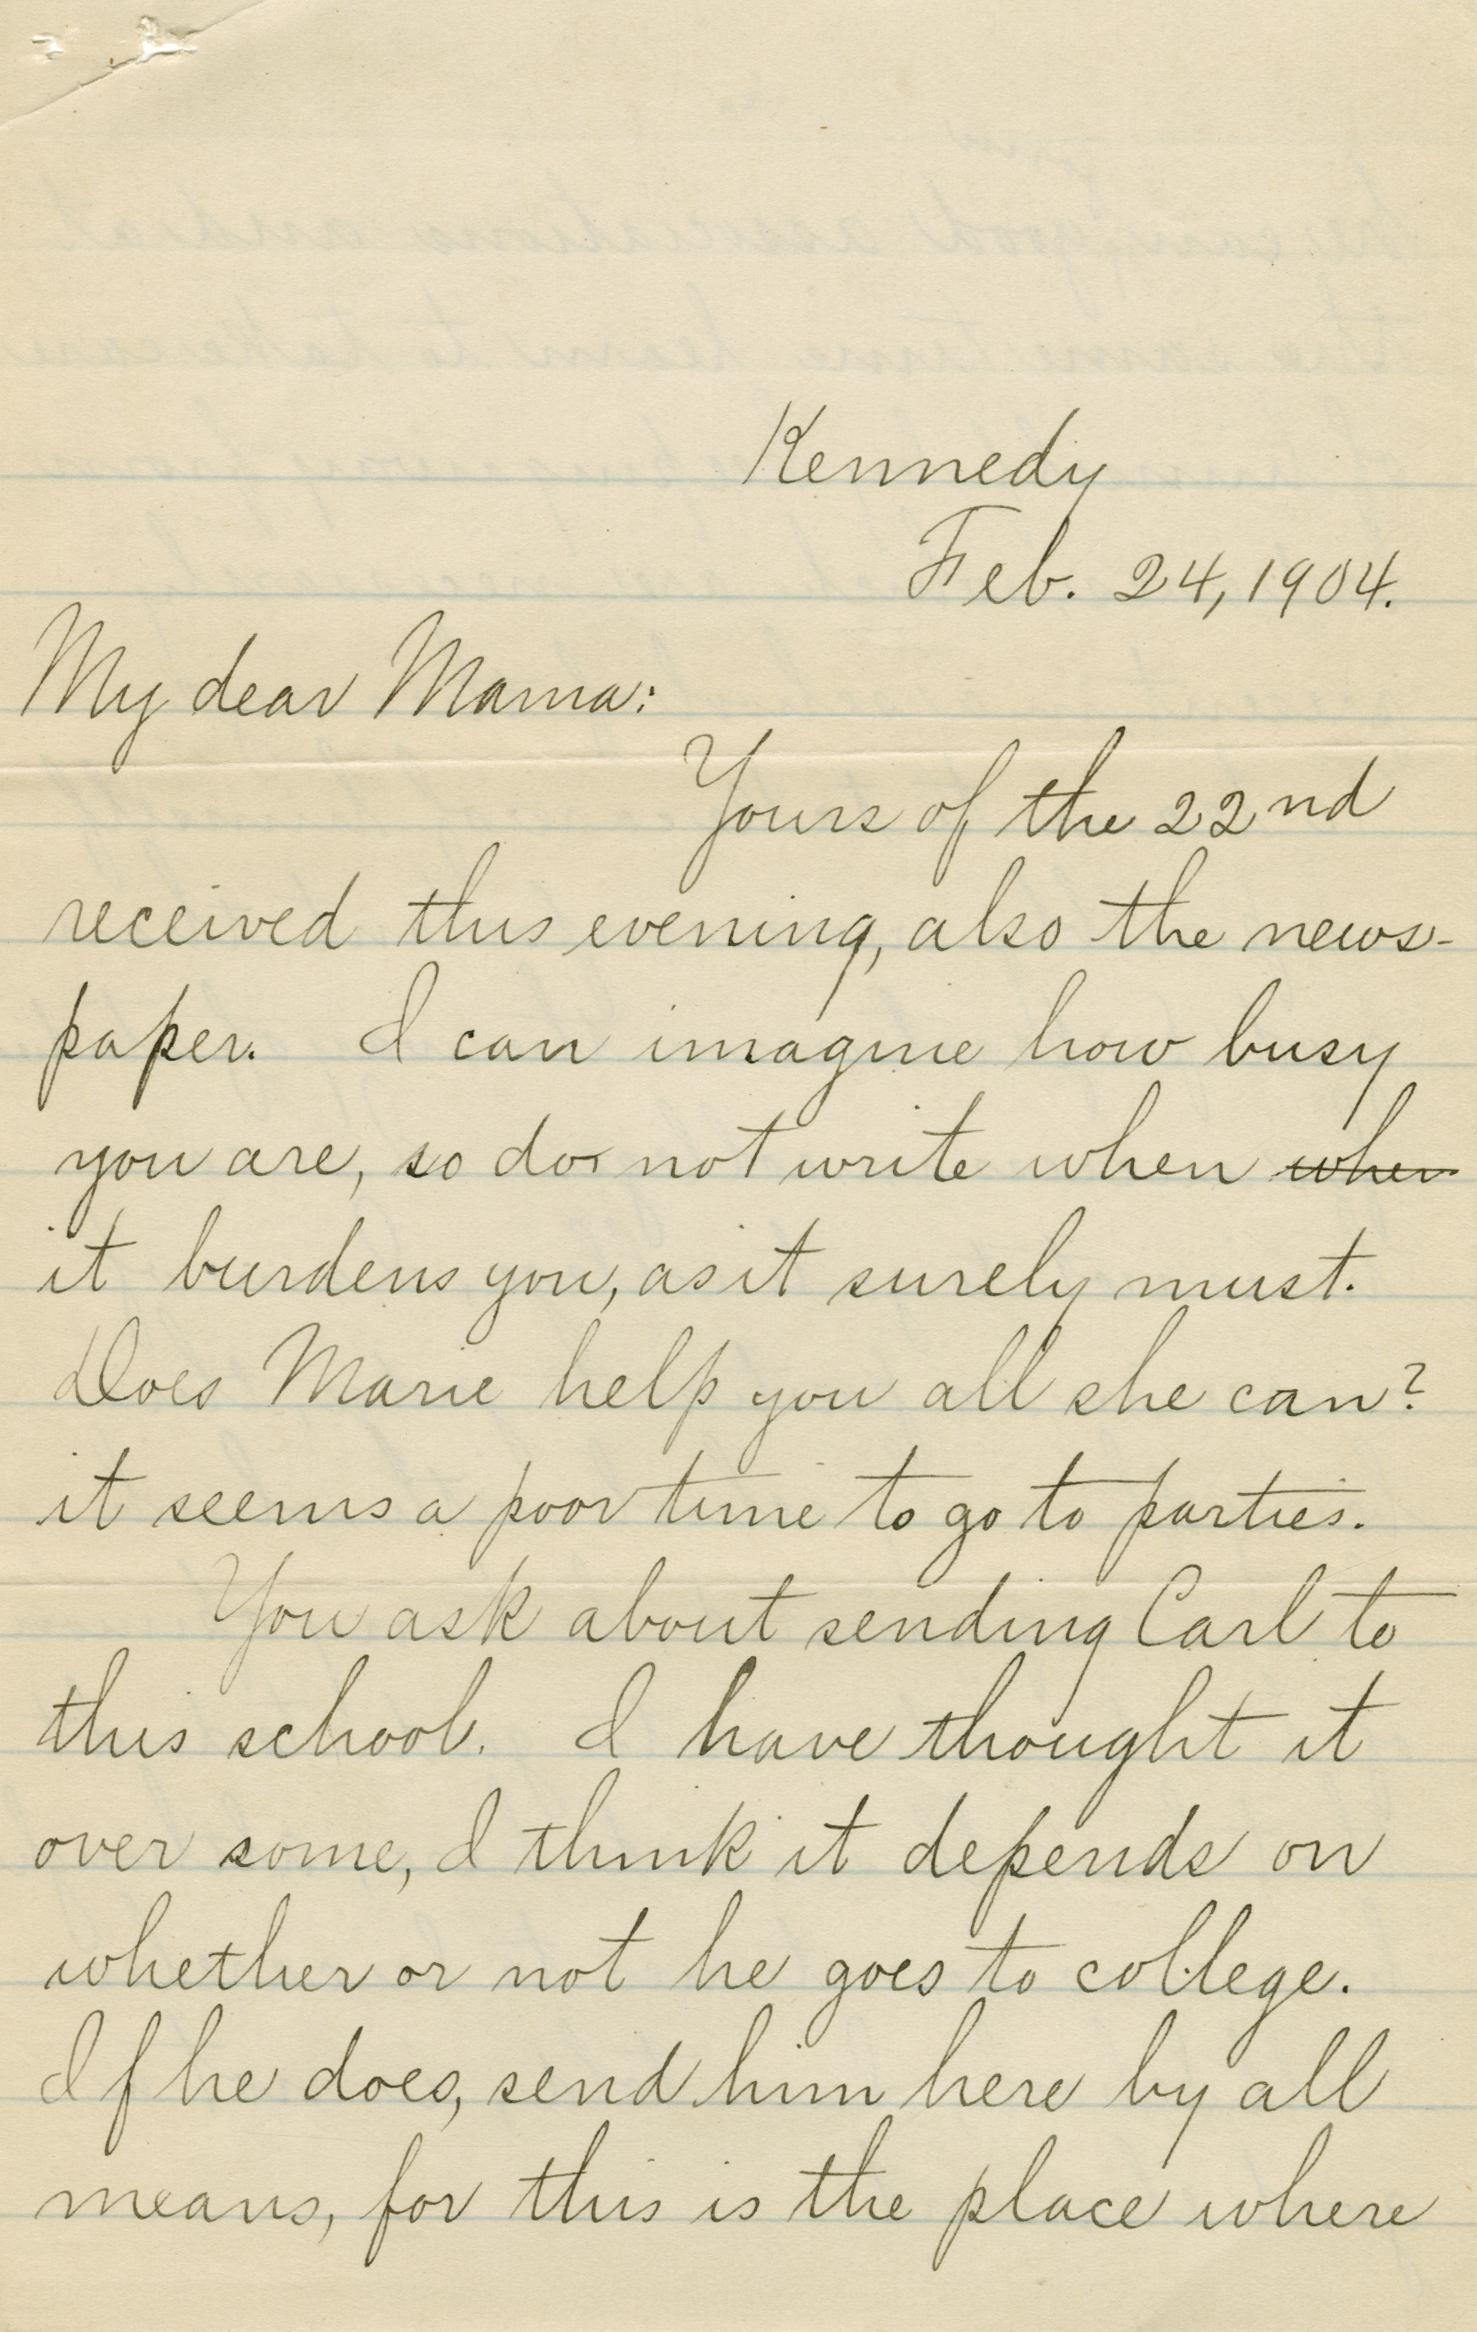 Kennedy
Feb. 24, 1904.
My dear Mama:
Yours of the 22nd
received this evening, also the news-
paper. I can imagine how busy
you are, so do not write when when
it burdens you, as it surely must.
Does Marie help you all she can?
it seems a poor time to go to parties.
You ask about sending Carl to
this school. I have thought it
over some, I think it depends on
whether or not he goes to college.
If he does, send him here by all
means, for this is the place where